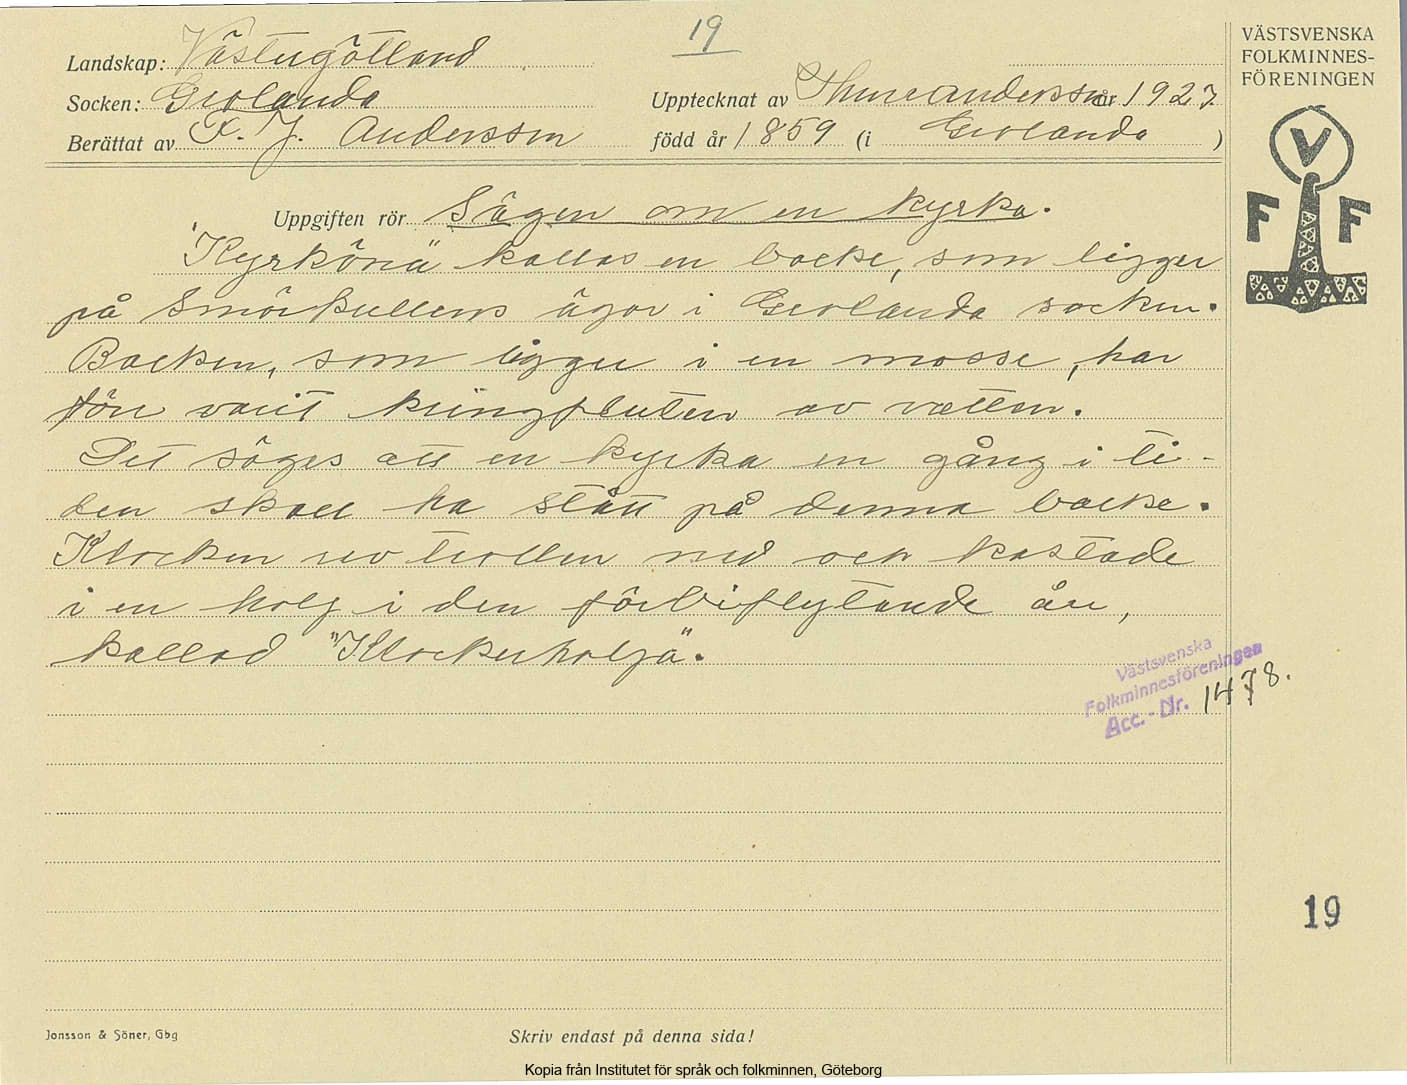 19
VÄSTSVENSKA
FOLKMINNES-
FÖRENINGEN
Landskap: Västergötland
Socken: Gerolanda
Upptecknat av Thure Andersson år 1927
Berättat av F. J. Andersson född år 1859 (i Gerolanda )
V
F F
Uppgiften rör Sägen om en kyrka.
"Kyrköna" kallas en backe, som ligger
på Smörkullens ägor i Gerolanda socken.
Backen, som ligger i en mosse, har
förr varit kringfluten av vatten.
Det säges att en kyrka en gång i ti-
den skall ha stått på denna backe.
Klockan rev trollen ned och kastade
i en holg i den förbiflytande ån,
kallad "Klockerholja".
Västsvenska
Folkminnesföreningen
Acc. - Nr. 1478.
19
Jonsson & Söner, Gbg
Skriv endast på denna sida!
Kopia från Institutet för språk och folkminnen, Göteborg